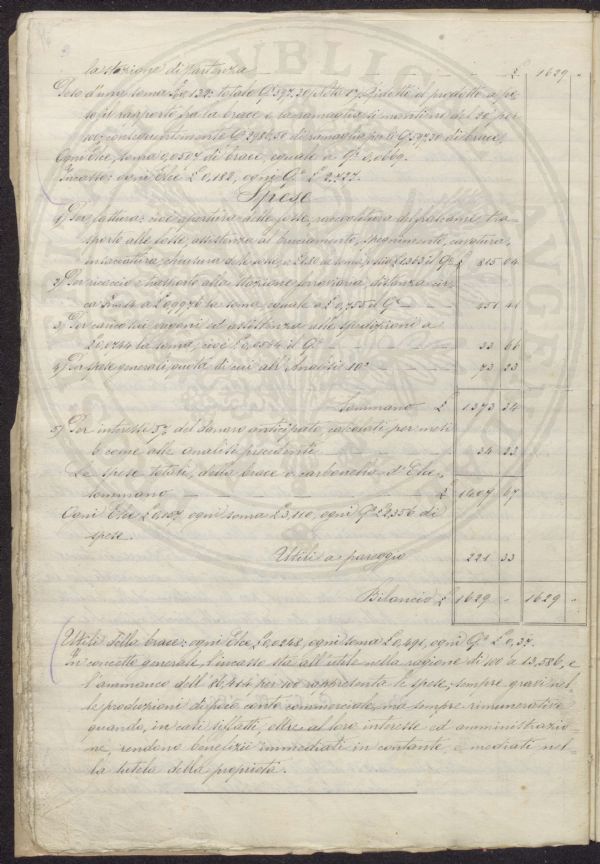 la stazione di partenza £ 1629 "
Peso d'una soma Q. 1,32: totale Q. 597,30
il rapporto fra la brace e la ramaglia si mantiene del 20 per
100; conseguentemente Q. 2986,50 di ramaglia per li Q. 597,30 di brace,
Ogni Elce, soma 0,0507 di brace, eguale a Q. 0,0669.
Incasso: ogni Elce £ 0,182, ogni Q. £ 2,727.
Spese
1) Per fattura: cioè apertura delle fosse, raccolitura del frascame tra-
sporto alle fosse, assistenza al bruciamento, spegnimento, cavatura,
insaccatura, chiusura delle fosse, a £ 1.80 la soma, pari a £ 1,363 il Q. £ 815 04
2) Per carico e trasporto alla stazione ferroviaria, distanza cir-
ca Km 14 a £ 0,9976 la soma, eguale a £ 0,755 il Q. 451 41
3) Per carico sui vagoni ed assistenza alle spedizioni a
£ 0,0744 la soma, cioè £ 0,0564 il Q. 33 66
4) Per spese generali, quota di cui all'Analisi 10ª 73 23
Sommano £ 1373 34
5) Per interesse 5% del denaro anticipato, calcolati per mesi
6 come alle analisi precedenti 34 33
Le spese totali, della brace o carbonella d'Elce,
sommano £ 1407 67
Ogni Elce £ 0,157 ogni soma £ 3,110, ogni Q. £ 2,356 di
spese.
Utili a pareggio 221 33
Bilancio £ 1629 " 1629 "
Utili della brace: ogni Elce £ 0,0248, ogni soma £ 0,491, ogni Q. £ 0,37.
In concetto generale, l'incasso sta all'utile nella ragione di 100 a 13,586, e
l'ammanco dell'86,414 per 100 rappresenta le spese; sempre gravi nel-
le produzioni di poco conto commerciale, ma sempre rimunerative
quando, in casi siffatti, oltre al loro interesse ed amministrazio-
ne, rendono benefizii immediati in contante, e mediati nel-
la tutela della proprietà.